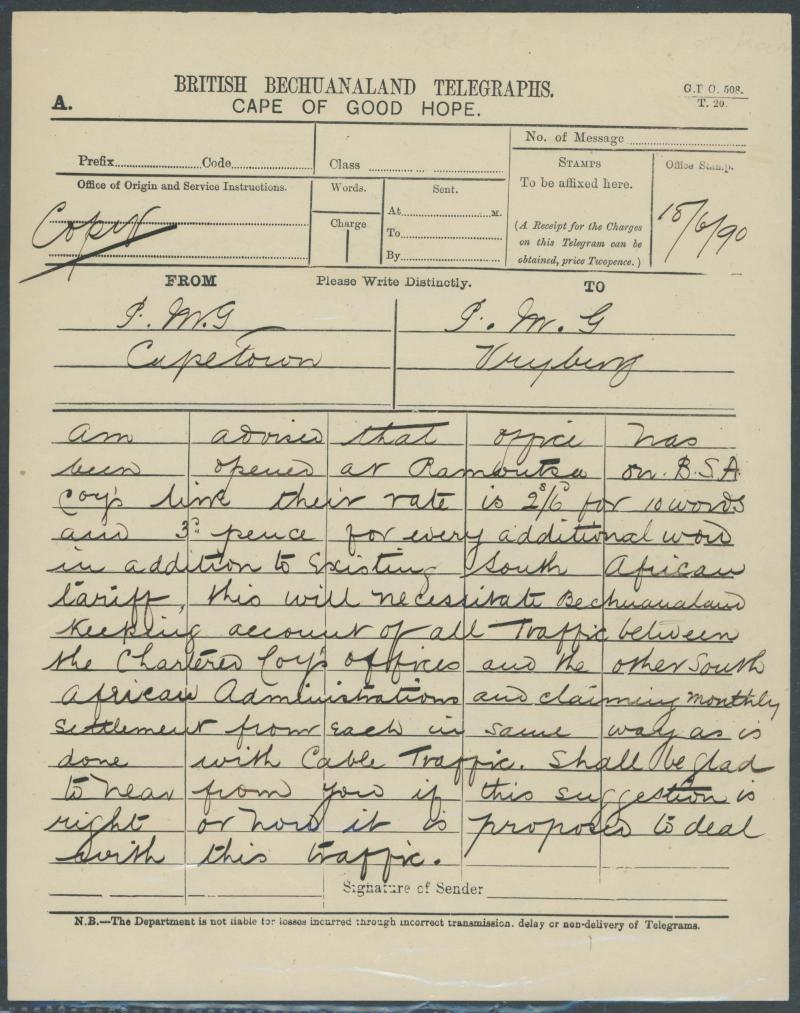 BRITISH BECHUANALAND TELEGRAPHS.
G.P.O. 508.
A.
CAPE OF GOOD HOPE.
T. 20.
No. of Message
Prefix Code Class
STAMPS
To be affixed here.
Office Stamp.
Office of Origin and Service Instructions.
Words.
Sent.
At M.
Charge
To
By
(A Receipt for the Charges
on this Telegram can be
obtained, price Twopence.)
Copy
18/6/90
FROM Please Write Distinctly. TO
P. M. G P. M. G
Capetown Vryburg
am advised that office has
been opened at Ramoutsa on B.S.A
Coy's line their rate is 2s/6d for 10 words
and 3d pence for every additional word
in addition to Existing South African
tariff, this will necessitate Bechuanaland
Keeping account of all Traffic between
the Chartered Coy's offices and the other South
African Administrations and claiming monthly
settlement from Each in same way as is
done with Cable Traffic. Shall be glad
to hear from you if this suggestion is
right or how it is proposed to deal
with this traffic.
Signature of Sender
N.B.—The Department is not liable for losses incurred through incorrect transmission, delay or non-delivery of Telegrams.